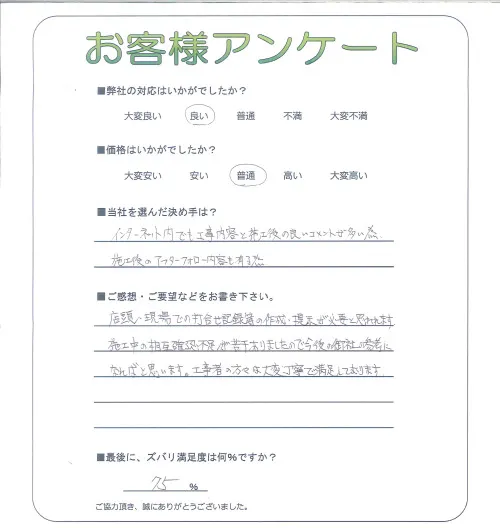 お客様アンケート
■弊社の対応はいかがでしたか？
大変良い 良い 普通 不満 大変不満
■価格はいかがでしたか？
大変安い 安い 普通 高い 大変高い
■当社を選んだ決め手は？
インターネット内でも工事内容と施工後の良いコメントが多い為
施工後のアフターフォロー内容も有る為
■ご感想・ご要望などをお書き下さい。
店頭、現場での打合せ記録簿の作成・提示が必要と思われます
施工中の相互確認不足が若干ありましたので今後の御社の参考に
なればと思います。工事者の方々は大変丁寧で満足しております
■最後に、ズバリ満足度は何%ですか？
75 %
ご協力頂き、誠にありがとうございました。